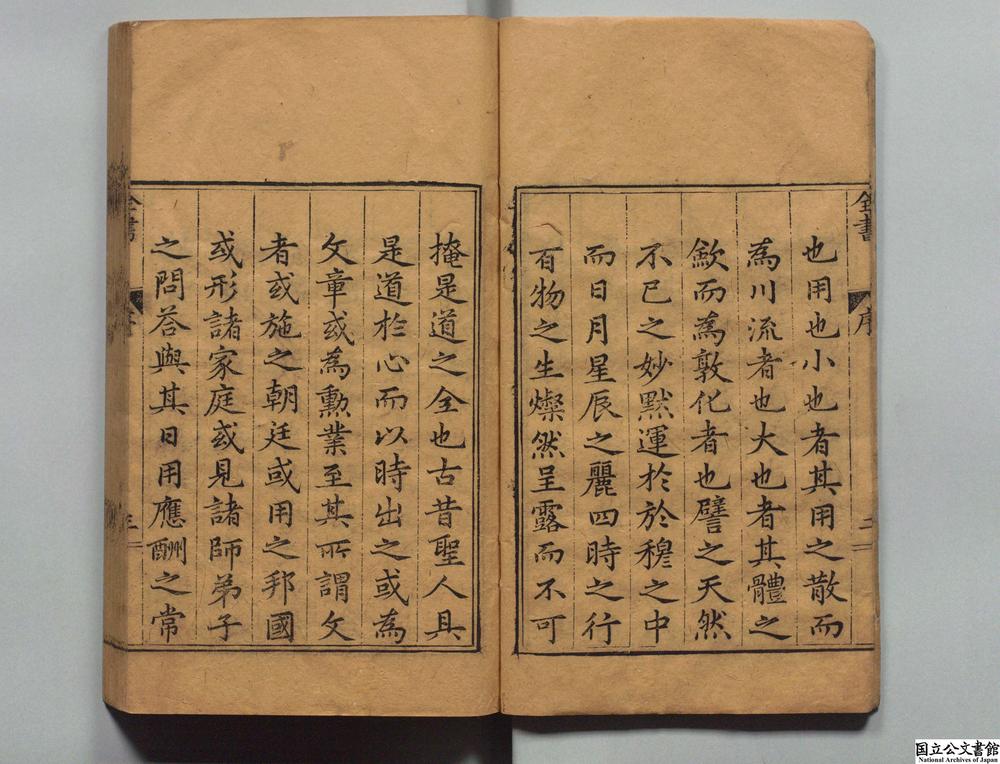 全書
序
二
也用也小也者其用之散而
為川流者也大也者其體之
歛而為敦化者也譬之天然
不已之妙默運於於穆之中
而日月星辰之麗四時之行
百物之生燦然呈露而不可
掩是道之全也古昔聖人具
是道於心而以時出之或為
文章或為勳業至其所謂文
者或施之朝廷或用之邦國
或形諸家庭或見諸師弟子
之問荅與其日用應酬之常
全書
序
三
国立公文書館
National Archives of Japan